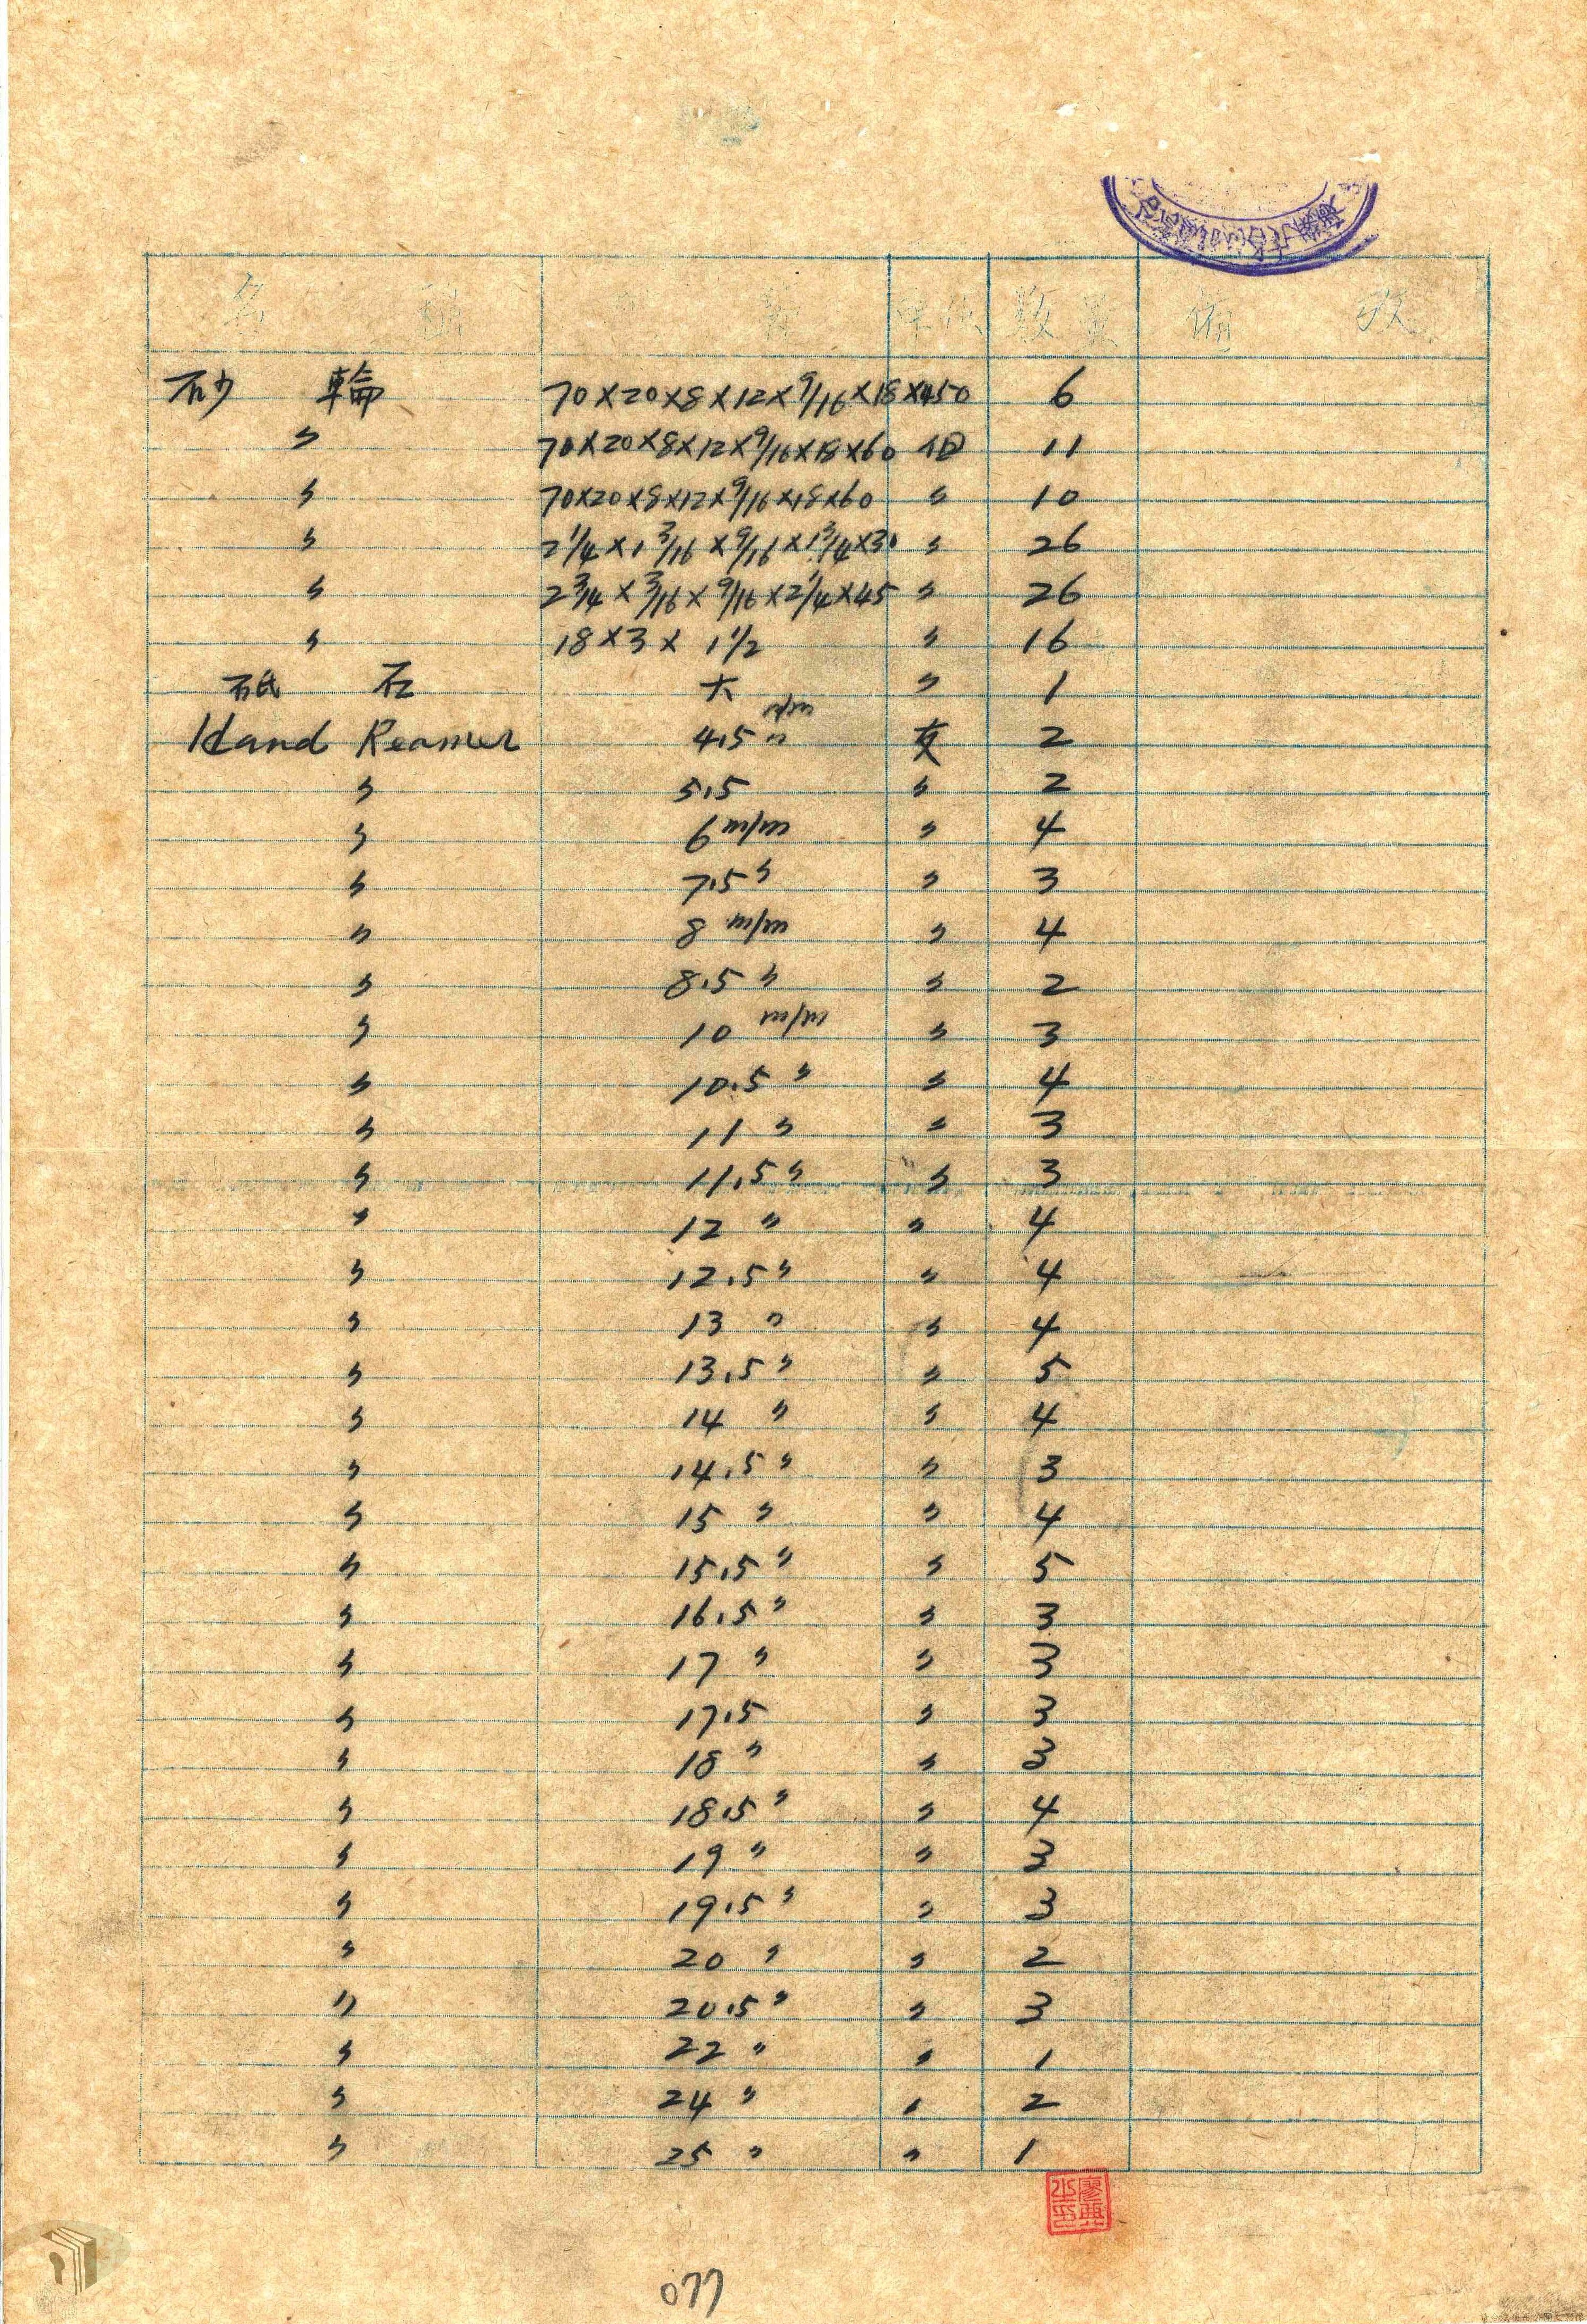 名 稱 單位 數量 備 攷
砂 輪 70×20×8×12×9/16×18×450 6
〃 70×20×8×12×9/16×18×60 個 11
〃 70×20×8×12×9/16×18×60 〃 10
〃 2 1/4×1 3/16×9/16×1 3/4×30 〃 26
〃 2 3/4×3/16×9/16×2 1/4×45 〃 26
〃 18×3×1 1/2 〃 16
砥 石 大 〃 1
Hand Reamer 4.5 m/m 支 2
〃 5.5 〃 2
〃 6 m/m 〃 4
〃 7.5 〃 〃 3
〃 8 m/m 〃 4
〃 8.5 〃 〃 2
〃 10 m/m 〃 3
〃 10.5 〃 〃 4
〃 11 〃 〃 3
〃 11.5 〃 〃 3
〃 12 〃 〃 4
〃 12.5 〃 〃 4
〃 13 〃 〃 4
〃 13.5 〃 〃 5
〃 14 〃 〃 4
〃 14.5 〃 〃 3
〃 15 〃 〃 4
〃 15.5 〃 〃 5
〃 16.5 〃 〃 3
〃 17 〃 〃 3
〃 17.5 〃 3
〃 18 〃 〃 3
〃 18.5 〃 〃 4
〃 19 〃 〃 3
〃 19.5 〃 〃 3
〃 20 〃 〃 2
〃 20.5 〃 〃 3
〃 22 〃 〃 1
〃 24 〃 〃 2
〃 25 〃 〃 1
077